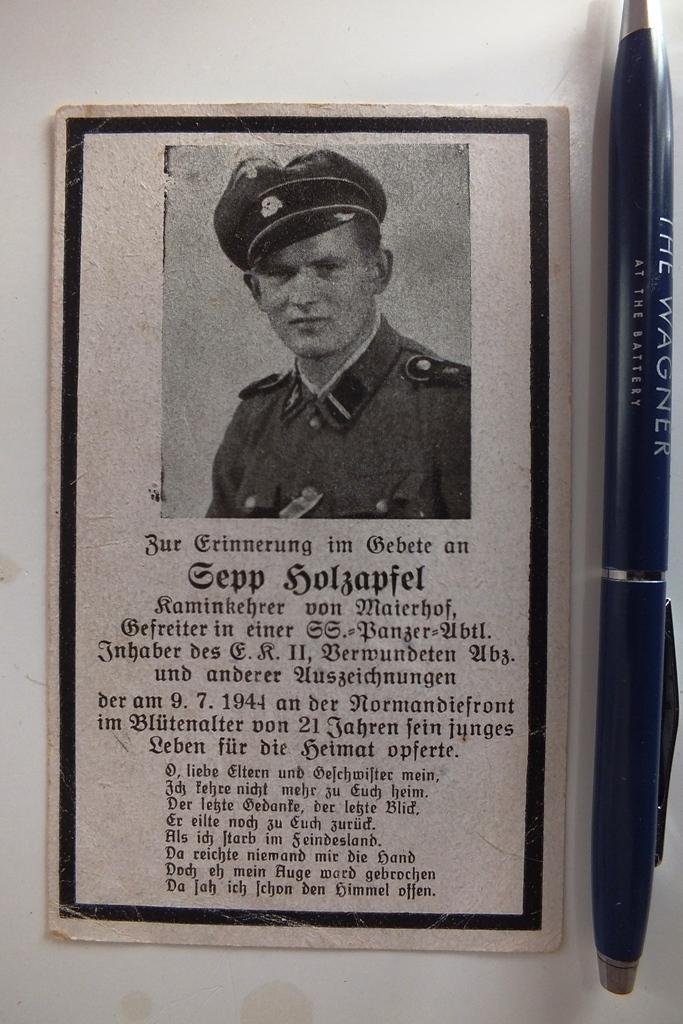 Zur Erinnerung im Gebete an
Sepp Holzapfel
Kaminkehrer von Maierhof,
Gefreiter in einer SS.=Panzer=Abtl.
Inhaber des E. K. II, Verwundeten Abz.
und anderer Auszeichnungen
der am 9. 7. 1944 an der Normandiefront
im Blütenalter von 21 Jahren sein junges
Leben für die Heimat opferte.
O, liebe Eltern und Geschwister mein,
Ich kehre nicht mehr zu Euch heim.
Der letzte Gedanke, der letzte Blick,
Er eilte noch zu Euch zurück.
Als ich starb im Feindesland.
Da reichte niemand mir die Hand
Doch eh mein Auge ward gebrochen
Da sah ich schon den Himmel offen.
THE WAGNER
AT THE BATTERY